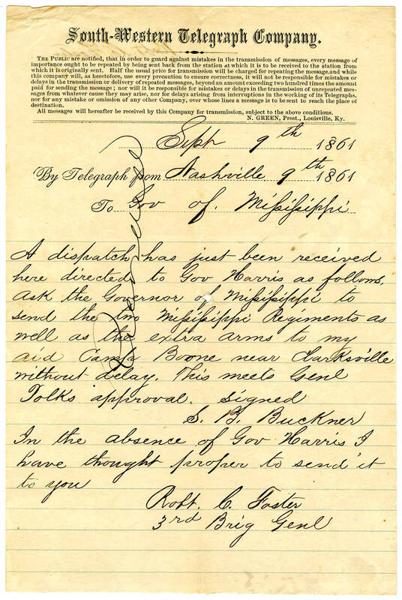 South-Western Telegraph Company.
THE PUBLIC are notified, that in order to guard against mistakes in the transmission of messages, every message of
importance ought to be repeated by being sent back from the station at which it is to be received to the station from
which it is originally sent. Half the usual price for transmission will be charged for repeating the message, and while
this company will, as heretofore, use every precaution to ensure correctness, it will not be responsible for mistakes or
delays in the transmission or delivery of repeated messages, beyond an amount exceeding two hundred times the amount
paid for sending the message; nor will it be responsible for mistakes or delays in the transmission of unrepeated messages
from whatever cause they may arise, nor for delays arising from interruptions in the working of its Telegraphs,
nor for any mistake or omission of any other Company, over whose lines a message is to be sent to reach the place of
destination.
All messages will hereafter be received by this Company for transmission, subject to the above conditions.
N. GREEN, Prest., Louisville, Ky.
Sept 9th 1861
By Telegraph from Nashville 9th 1861
To Gov of Mississippi
A dispatch has just been received
here directed to Gov Harris as follows,
ask the Governor of Mississippi to
send the two Mississippi Regiments as
well as the extra arms to my
aid Camp Boone near Clarksville
without delay. This meets Genl
Polks approval. Signed
S. B. Buckner
In the absence of Gov Harris I
have thought proper to send it
to you
Robt. C. Foster
3rd Brig Genl